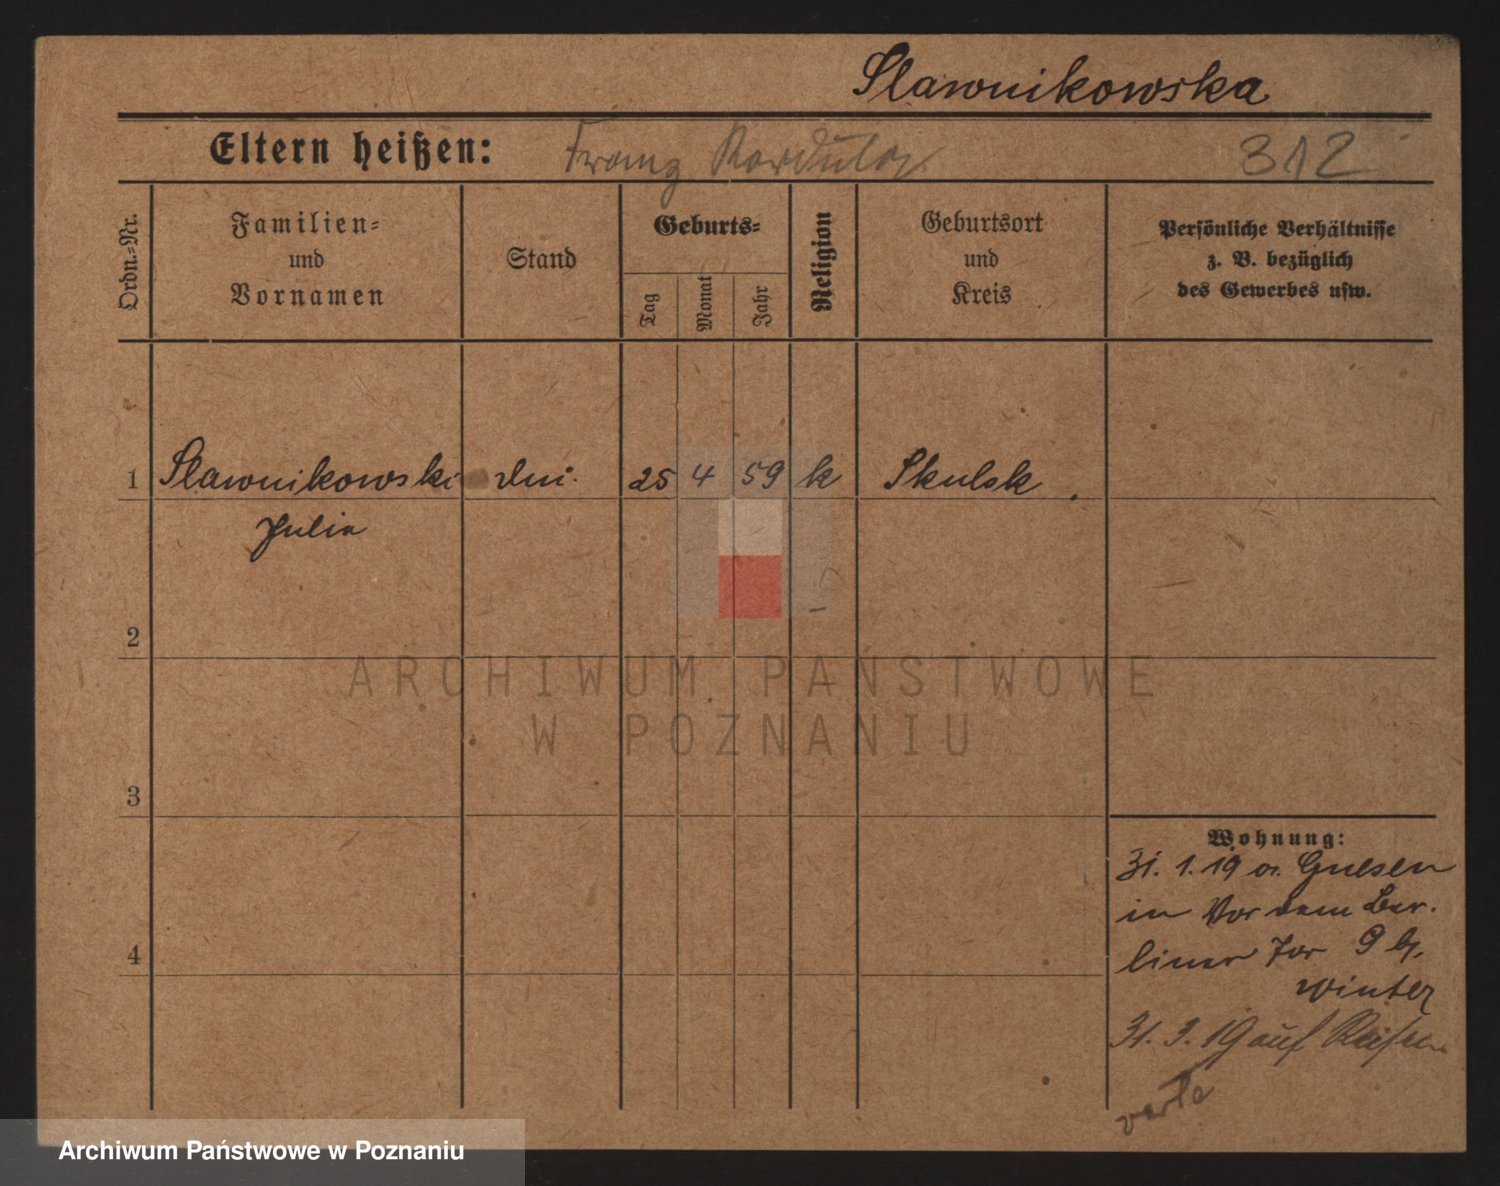 Slawnikowska
Eltern heißen: Franz 312
Ordn.-Nr.
Familien-
und
Vornamen
Stand
Geburts-
Tag
Monat
Jahr
Religion
Geburtsort
und
Kreis
Persönliche Verhältnisse
z. B. bezüglich
des Gewerbes usw.
1 Slawnikowski 25 4 59 k Skulsk
Julia
2
ARCHIWUM PAŃSTWOWE
W POZNANIU
3
Wohnung:
31. 1. 19 a. Gnesen
in Vor dem Ber.
liner Tor 9 b.
Winter
31. 3. 19 auf Reisen
verte
4
Archiwum Państwowe w Poznaniu